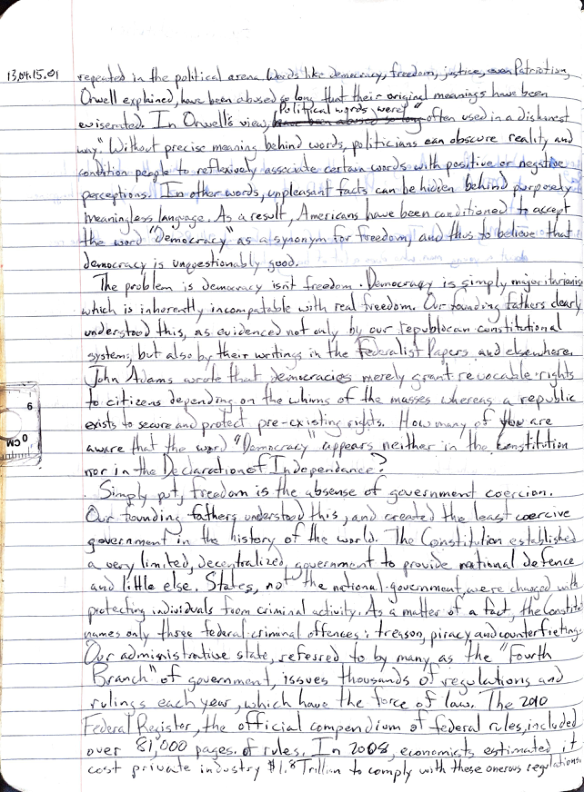 13.04.15.01
repeated in the political arena. Words like democracy, freedom, justice, even Patriotism,
Orwell explained, have been abused so long that their original meanings have been
eviserated. In Orwell's view, Political words were "often used in a dishonest
way." Without precise meaning behind words, politicians can obscure reality, and
condition people to reflexively associate certain words with positive or negative
perceptions. In other words, unpleasant facts can be hidden behind purposely
meaningless language. As a result, Americans have been conditioned to accept
the word "Democracy" as a synonym for freedom, and thus to believe that
democracy is unquestionably good.
The problem is democracy isn't freedom. Democracy is simply majoritarianis
which is inherently incompatable with real freedom. Our founding fathers clearly
understood this, as evidenced not only by our republican constitutional
systems, but also by their writings in the Federalist Papers and elsewhere.
John Adams wrote that democracies merely grant revocable rights
to citizens depending on the whims of the masses whereas a republic
exists to secure and protect pre-existing rights. How many of you are
aware that the word "Democracy" appears neither in the constitution
nor in the Declaration of Independence?
Simply put, freedom is the absense of government coercion.
Our founding fathers understood this, and created the least coercive
government in the history of the world. The Constitution established
a very limited, decentralized, government to provide national defence
and little else. States, not the national government, were charged with
protecting individuals from criminal activity. As a matter of a fact, the Constitut
names only three federal criminal offences: treason, piracy and counterfieting.
Our administrative state, referred to by many as the "Fourth
Branch" of government, issues thousands of regulations and
rulings each year, which have the force of law. The 2010
Federal Register, the official compendium of federal rules, included
over 81,000 pages of rules. In 2008, economists estimated it
cost private industry $1.8 Trillion to comply with these onerous regulations.
9